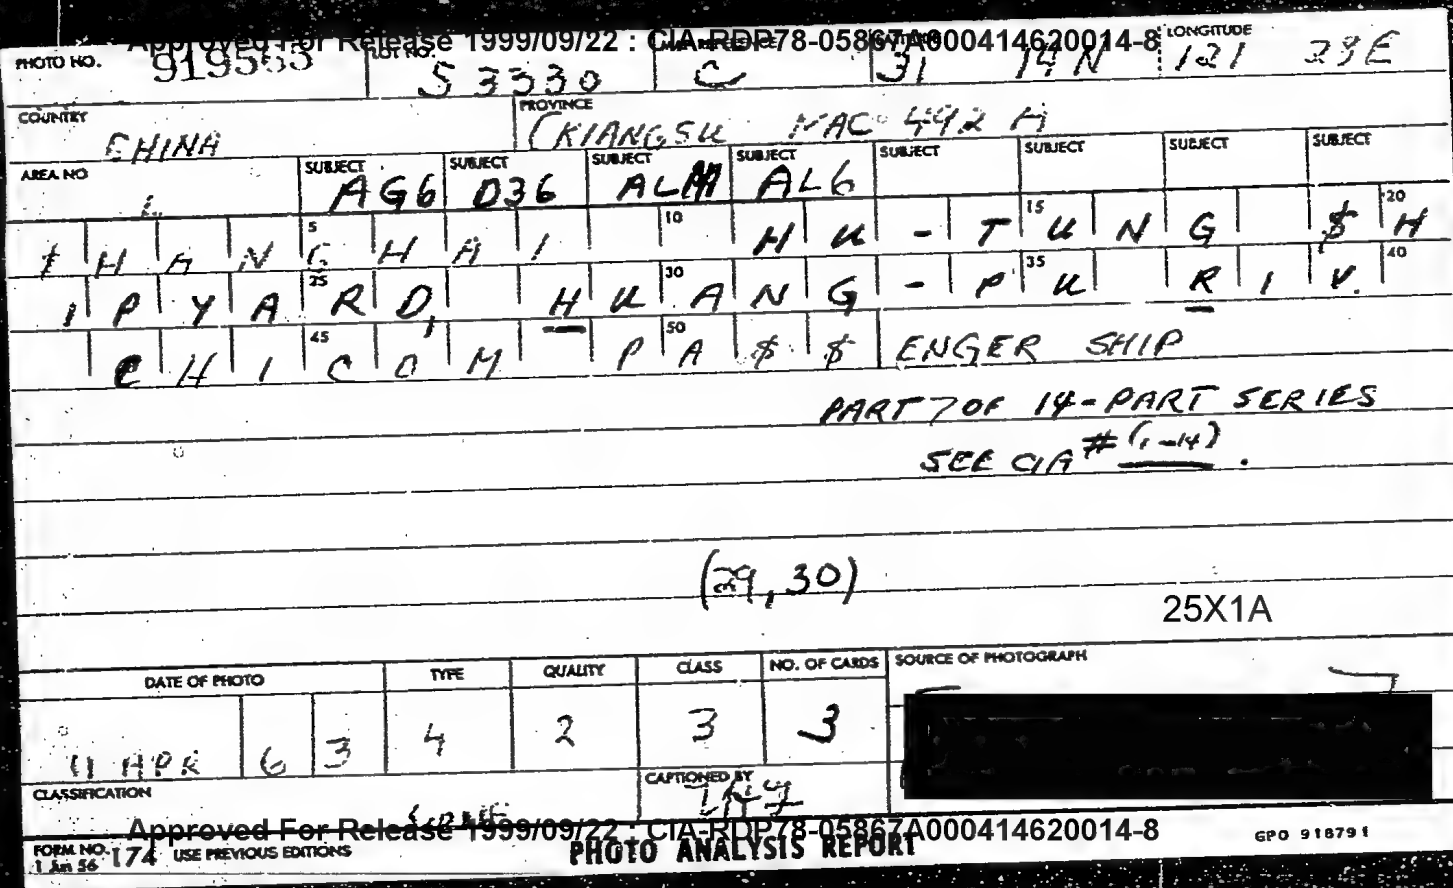 Approved For Release 1999/09/22 : CIA-RDP78-05867A000414620014-8
PHOTO NO. LOT NO. S 3330 C 31 14 N LONGITUDE 121 29E
COUNTRY CHINA PROVINCE (KIANGSU NAC 492 A
AREA NO SUBJECT AG6 SUBJECT D36 SUBJECT ALM SUBJECT AL6 SUBJECT SUBJECT SUBJECT SUBJECT
$HANGHAI HU-TUNG $H
IPYARD, HUANG-PU RIV.
CHICOM PA$$ENGER SHIP
PART 7 OF 14-PART SERIES
SEE CIA # (1-14).
(29, 30)
25X1A
DATE OF PHOTO TYPE QUALITY CLASS NO. OF CARDS SOURCE OF PHOTOGRAPH
11 APR 6 3 4 2 3 3
CLASSIFICATION CAPTIONED BY
Approved For Release 1999/09/22 : CIA-RDP78-05867A000414620014-8
FORM NO. 174 USE PREVIOUS EDITIONS PHOTO ANALYSIS REPORT GPO 918791
1 Jun 56